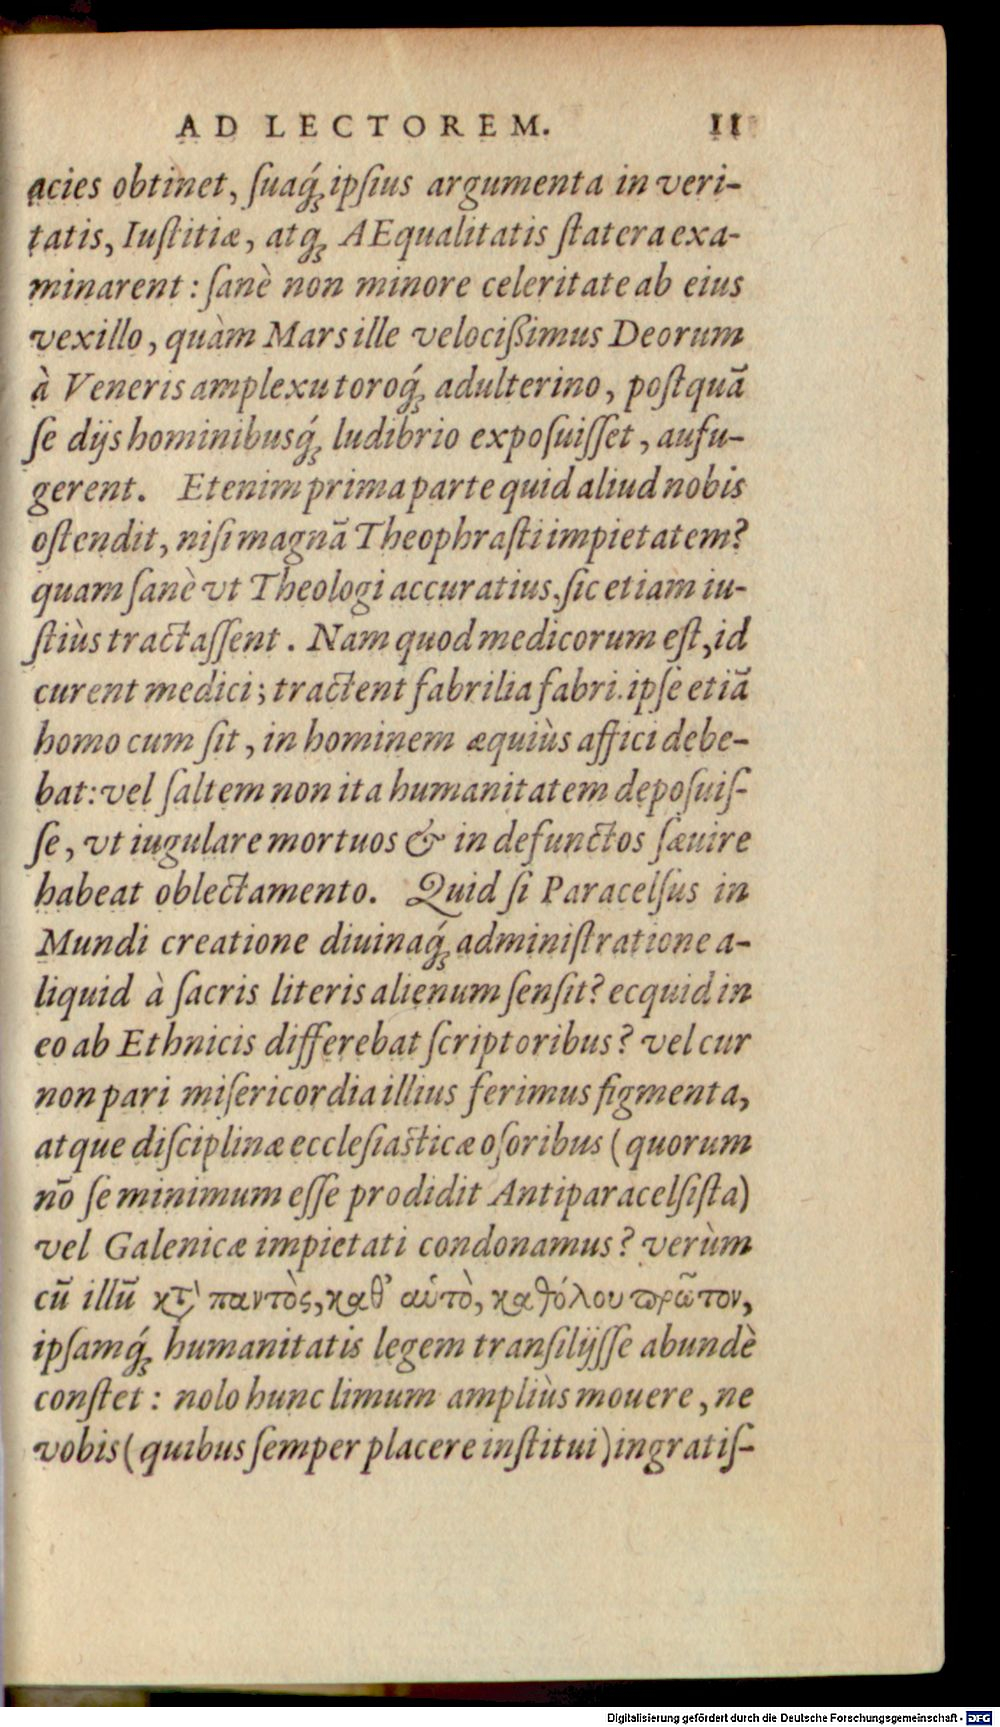 AD LECTOREM. 11
acies obtinet, ſuaq́ꝫ ipſius argumenta in veri-
tatis, Iuſtitiæ, atqꝫ AEqualitatis ſtatera exa-
minarent: ſanè non minore celeritate ab eius
vexillo, quàm Mars ille velocißimus Deorum
à Veneris amplexu toroq́ꝫ adulterino, poſtquā
ſe dijs hominibusq́ꝫ ludibrio expoſuiſſet, aufu-
gerent. Etenim prima parte quid aliud nobis
oſtendit, niſi magnā Theophraſti impietatem?
quam ſanè vt Theologi accuratius, ſic etiam iu-
ſtiùs tractaſſent. Nam quod medicorum eſt, id
curent medici; tractent fabrilia fabri. ipſe etiā
homo cum ſit, in hominem æquiùs affici debe-
bat: vel ſaltem non ita humanitatem depoſuiſ-
ſe, vt iugulare mortuos & in defunctos ſæuire
habeat oblectamento. Quid ſi Paracelſus in
Mundi creatione diuinaq́ꝫ adminiſtratione a-
liquid à ſacris literis alienum ſenſit? ecquid in
eo ab Ethnicis differebat ſcriptoribus? vel cur
non pari miſericordia illius ferimus figmenta,
atque diſciplinæ eccleſiaſticæ oſoribus (quorum
nō ſe minimum eſſe prodidit Antiparacelſiſta)
vel Galenicæ impietati condonamus? verùm
cū illū κτ̀ παντὸς, καθ’ αὑτὸ, καθόλου πρῶτον,
ipſamq́ꝫ humanitatis legem tranſilijſſe abundè
conſtet: nolo hunc limum ampliùs mouere, ne
vobis (quibus ſemper placere inſtitui) ingratiſ-
Digitalisierung gefördert durch die Deutsche Forschungsgemeinschaft - DFG